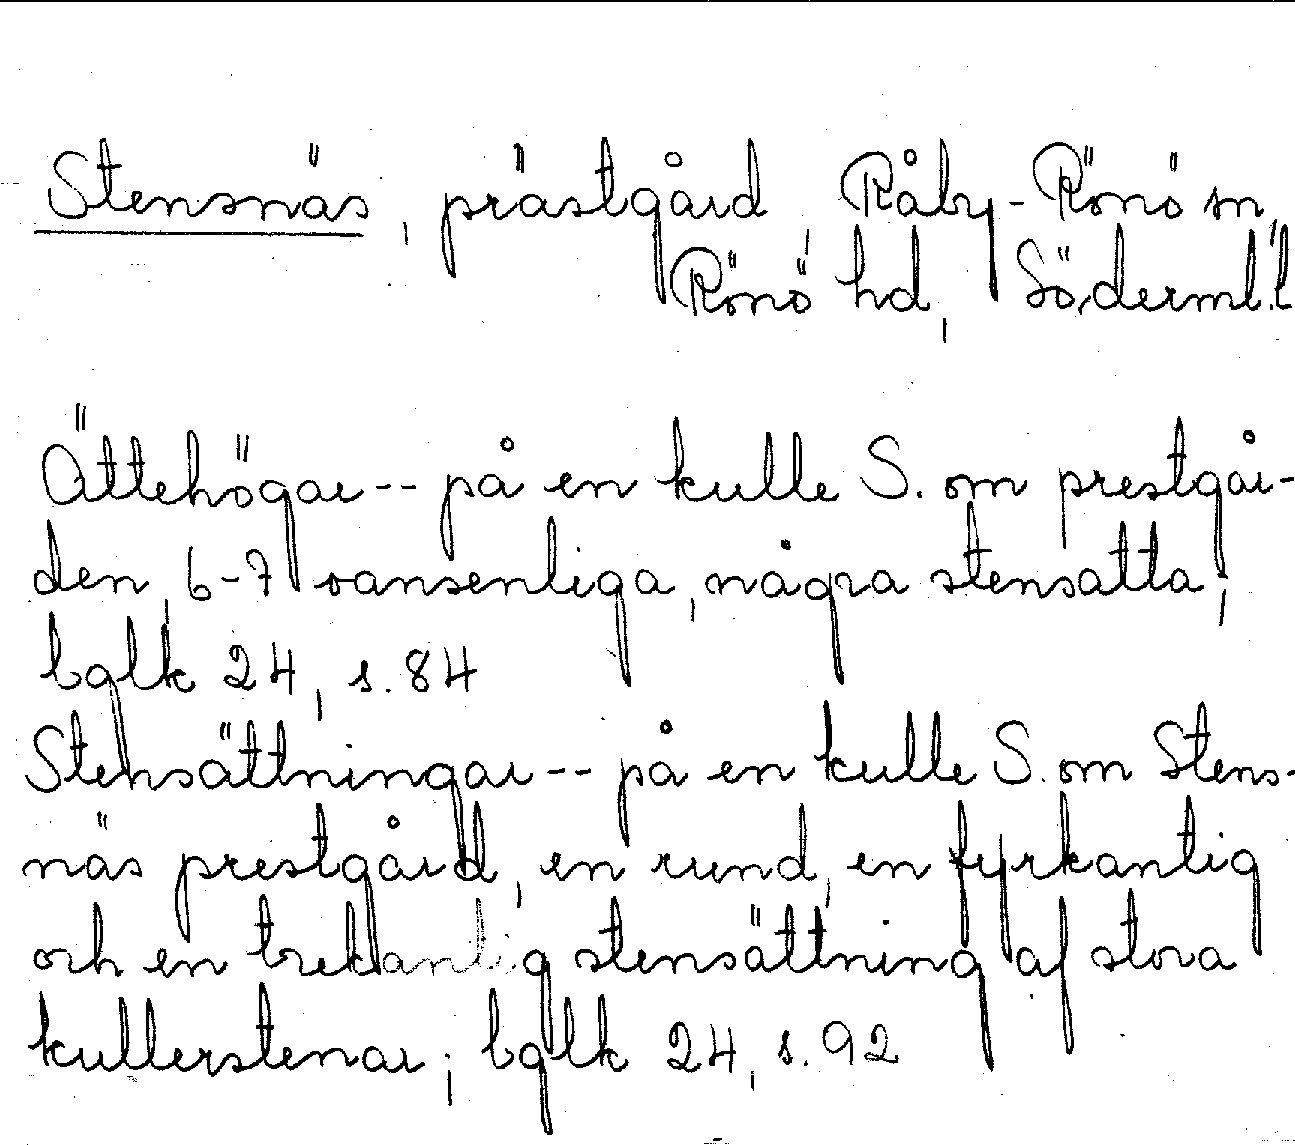 Stensnäs, prästgård, Råby-Rönö sn,
Rönö hd, Söderml. l
Ättehögar -- på en kulle S. om prestgår-
den, 6-7 ansenliga, några stensatta;
bglk 24, s. 84
Stensättningar -- på en kulle S. om Stens-
näs prestgård, en rund, en fyrkantig
och en trekantig stensättning af stora
kullerstenar; bglk 24, s. 92